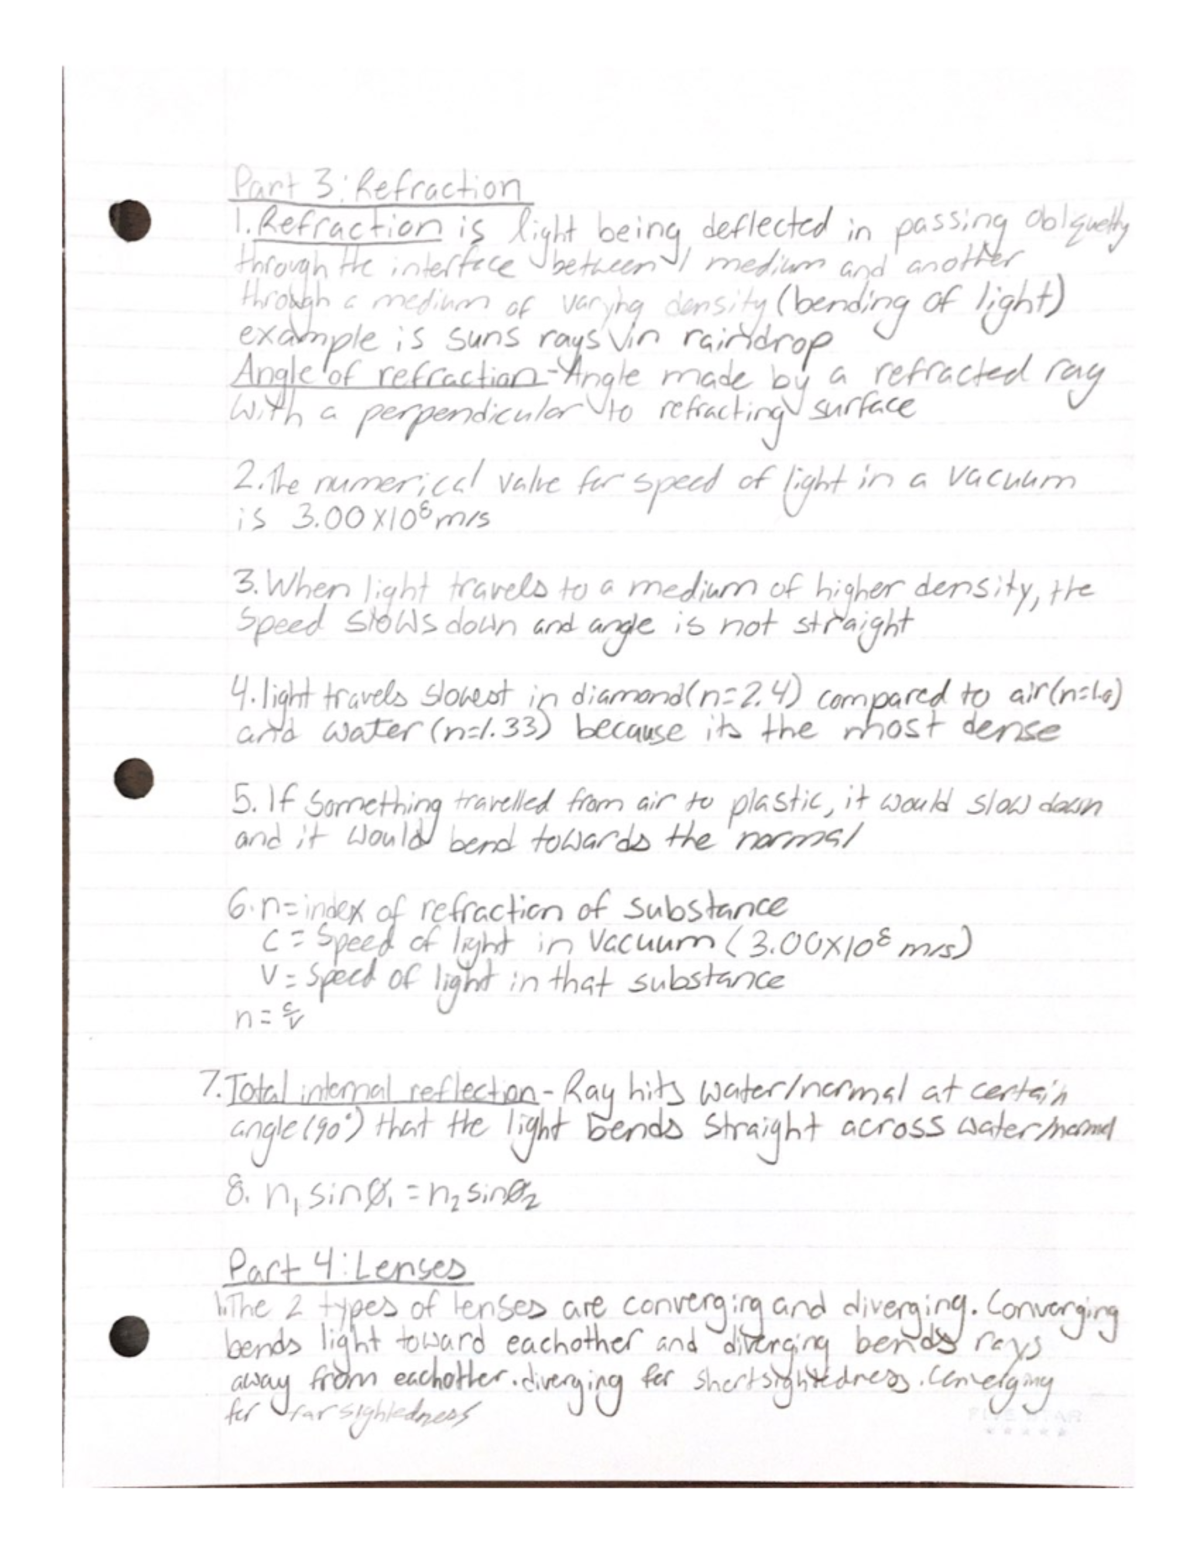 Part 3: Refraction
1. Refraction is light being deflected in passing obliquelty
through the interface between 1 medium and another
through a medium of varying density (bending of light)
example is suns rays in raindrop
Angle of refraction - Angle made by a refracted ray
with a perpendicular to refracting surface
2. The numerical value for speed of light in a vacuum
is 3.00x10⁸ m/s
3. When light travels to a medium of higher density, the
speed slows down and angle is not straight
4. light travels slowest in diamond (n=2.4) compared to air (n=1.0)
and water (n=1.33) because its the most dense
5. If something travelled from air to plastic, it would slow down
and it would bend towards the normal
6. n= index of refraction of substance
c = Speed of light in vacuum (3.00x10⁸ m/s)
v = Speed of light in that substance
n = c/v
7. Total internal reflection - Ray hits water/normal at certain
angle (90°) that the light bends straight across water/normal
8. n₁ sinØ₁ = n₂ sinØ₂
Part 4: Lenses
1. The 2 types of lenses are converging and diverging. Converging
bends light toward eachother and diverging bends rays
away from eachother. diverging for shortsightedness. Converging
for farsightedness
FIVE STAR
★★★★★